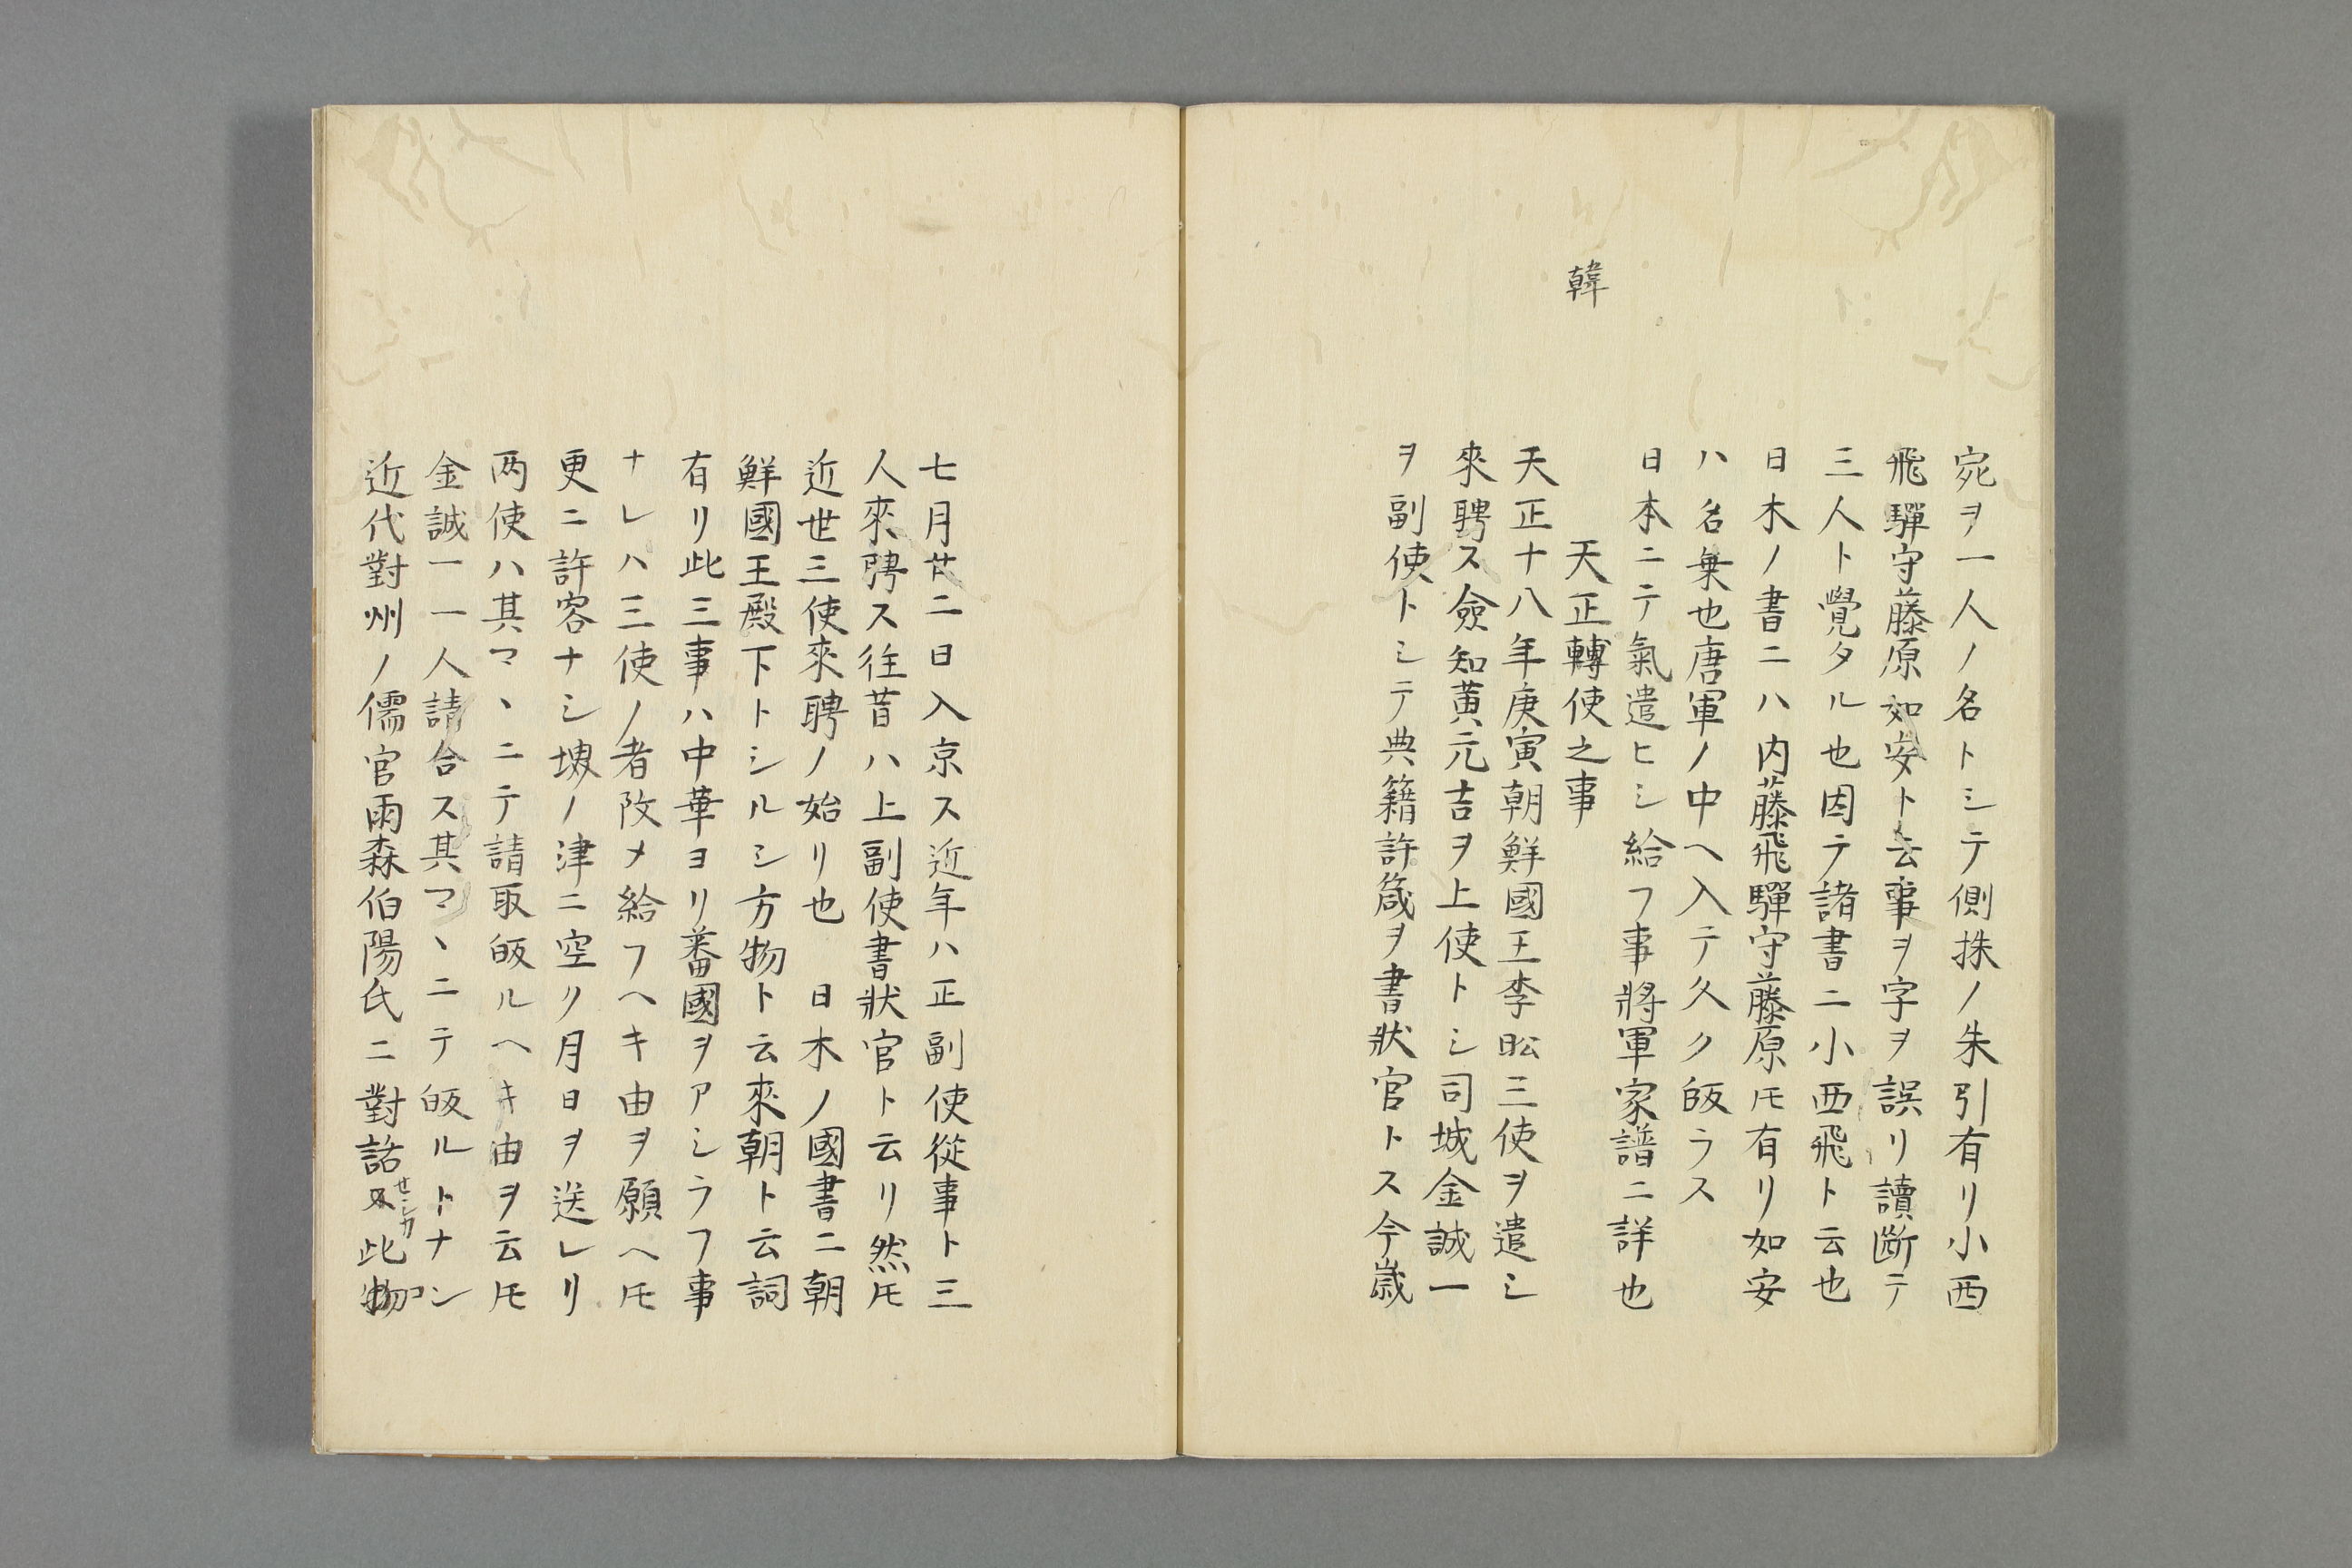 宛ヲ一人ノ名トシテ側抹ノ朱引有リ小西
飛驒守藤原如安ト云事ヲ字ヲ誤リ讀断テ
三人ト覺タル也因テ諸書ニ小西飛ト云也
日木ノ書ニハ内藤飛驒守藤原𪜈有リ如安
ハ名乗也唐軍ノ中ヘ入テ久ク皈ラス
日本ニテ氣遣ヒシ給フ事將軍家譜ニ詳也
韓
天正轉使之事
天正十八年庚寅朝鮮國王李昖三使ヲ遣シ
來聘ス僉知黄元吉ヲ上使トシ司城金誠一
ヲ副使トシテ典籍許箴ヲ書狀官トス今歳
七月廿二日入京ス近年ハ正副使從事ト三
人來聘ス往昔ハ上副使書狀官ト云リ然𪜈
近世三使來聘ノ始リ也　日木ノ國書ニ朝
鮮國王殿下トシルシ方物ト云來朝ト云詞
有リ此三事ハ中華ヨリ蕃國ヲアシラフ事
ナレハ三使ノ者改メ給フヘキ由ヲ願ヘ𪜈
更ニ許容ナシ堺ノ津ニ空ク月日ヲ送レリ
两使ハ其マヽニテ請取皈ルヘキ由ヲ云𪜈
金誠一一人請合ス其マヽニテ皈ルトナン
近代對州ノ儒官雨森伯陽氏ニ對話せシカ此物